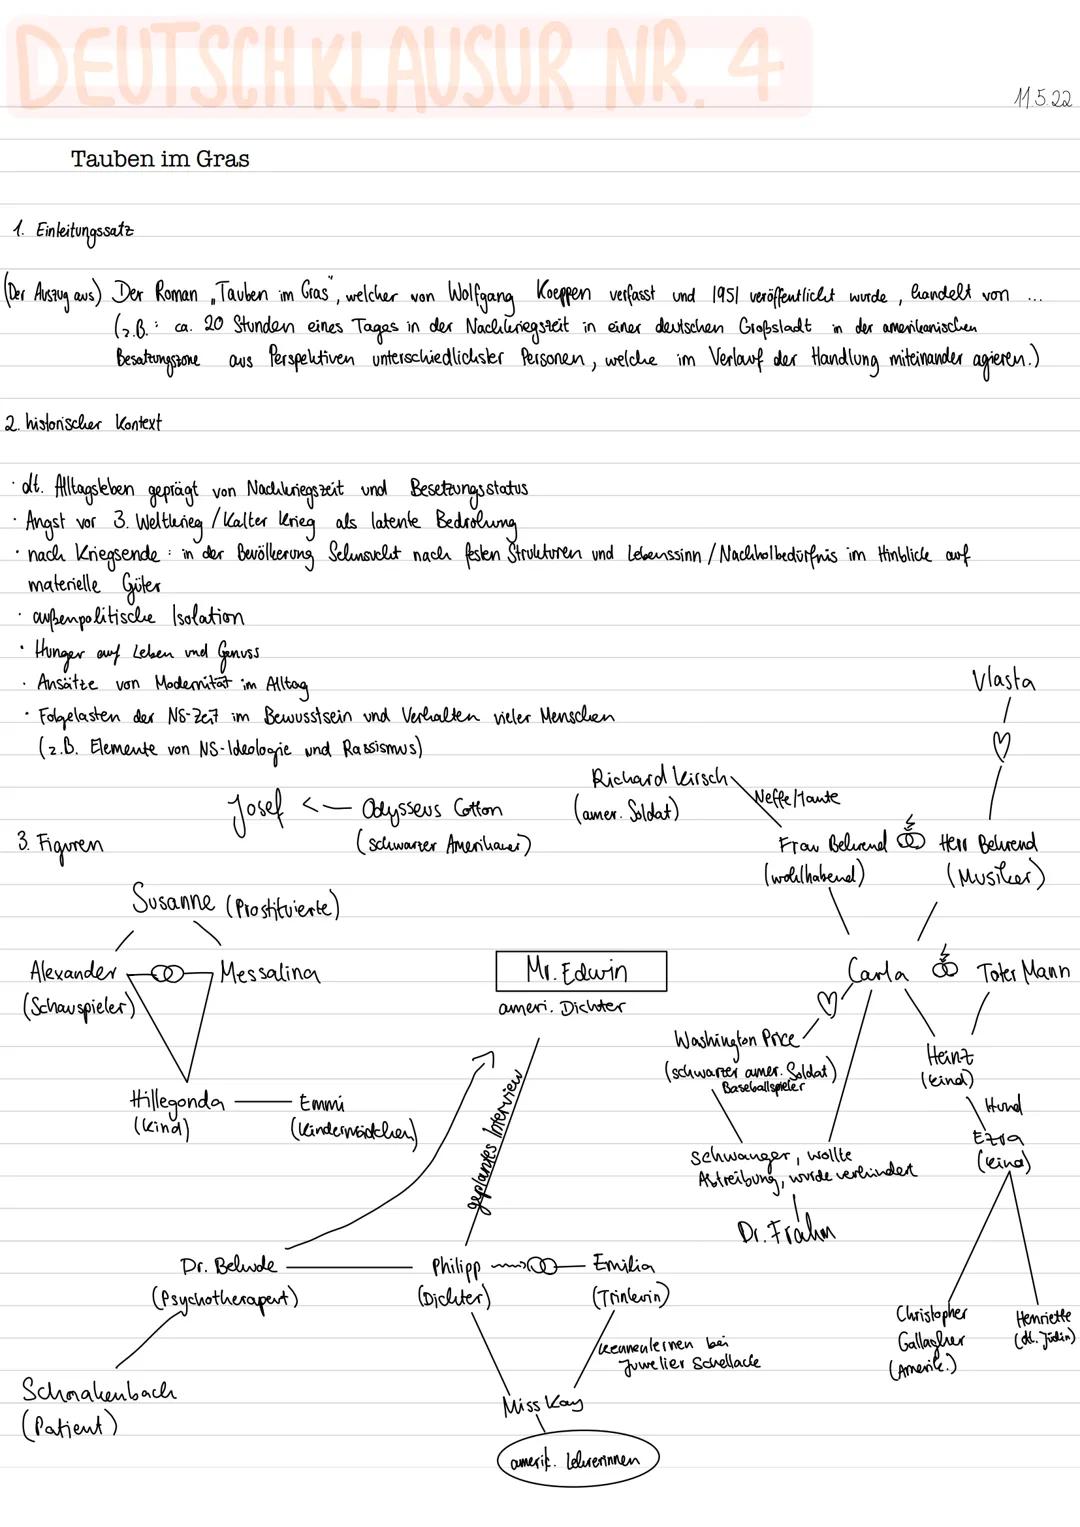 DEUTSCHKLAUSUR NR. 4
11.5.22
Tauben im Gras
1. Einleitungssatz
(Der Auszug aus) Der Roman „Tauben im Gras", welcher von Wolfgang Koeppen verfasst und 1951 veröffentlicht wurde, handelt von ...
(z.B.: ca. 20 Stunden eines Tages in der Nachkriegszeit in einer deutschen Großstadt in der amerikanischen
Besatzungszone aus Perspektiven unterschiedlichster Personen, welche im Verlauf der Handlung miteinander agieren.)
2. historischer Kontext
· dt. Alltagsleben geprägt von Nachkriegszeit und Besetzungsstatus
· Angst vor 3. Weltkrieg / Kalter Krieg als latente Bedrohung
· nach Kriegsende: in der Bevölkerung Sehnsucht nach festen Strukturen und Lebenssinn / Nachholbedürfnis im Hinblick auf
materielle Güter
· außenpolitische Isolation
· Hunger auf Leben und Genuss
· Ansätze von Modernität im Alltag
· Folgelasten der NS-Zeit im Bewusstsein und Verhalten vieler Menschen
(z.B. Elemente von NS-Ideologie und Rassismus)
3. Figuren
Vlasta
Josef <— Odysseus Cotton
(schwarzer Amerikaner)
Richard Kirsch
(amer. Soldat)
Neffe/Tante
Frau Behrend
(wohlhabend)
Herr Behrend
(Musiker)
Susanne (Prostituierte)
Alexander
(Schauspieler)
Messalina
Mr. Edwin
ameri. Dichter
Carla
Toter Mann
Washington Price
(schwarzer amer. Soldat)
Baseballspieler
Heinz
(Kind)
Hund
Ezra
(Kind)
Hillegonda
(Kind)
Emmi
(Kindermädchen)
geplantes Interview
schwanger, wollte
Abtreibung, wurde verhindert
Dr. Frahm
Dr. Behude
(Psychotherapeut)
Philipp
(Dichter)
Emilia
(Trinkerin)
Christopher
Gallagher
(Amerik.)
Henriette
(dt. Jüdin)
Kennenlernen bei
Juwelier Schellack
Schnakenbach
(Patient)
Miss Kay
amerik. Lehrerinnen